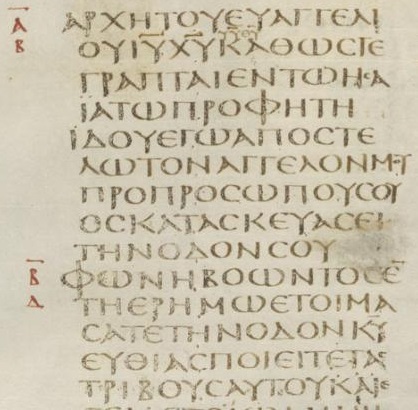 Α ΑΡΧΗΤΟΥΕΥΑΓΓΕΛΙ
Β ΟΥΙ̅Υ̅Χ̅Υ̅ΚΑΘΩϹΓΕ
ΓΡΑΠΤΑΙΕΝΤΩΗϹΑ
ΪΑΤΩΠΡΟΦΗΤΗ
ΪΔΟΥΕΓΩΑΠΟϹΤΕ
ΛΩΤΟΝΑΓΓΕΛΟΝΜΟΥ
ΠΡΟΠΡΟϹΩΠΟΥϹΟΥ
ΟϹΚΑΤΑϹΚΕΥΑϹΕΙ
ΤΗΝΟΔΟΝϹΟΥ
Β ΦΩΝΗΒΟΩΝΤΟϹΕ̅
ΤΗΕΡΗΜΩΕΤΟΙΜΑ
ϹΑΤΕΤΗΝΟΔΟΝΚ̅Υ̅
ΕΥΘΙΑϹΠΟΙΕΙΤΕΤΑϹ
ΤΡΙΒΟΥϹΑΥΤΟΥΚΑΙΕ